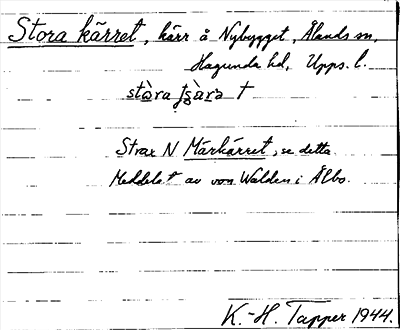 Stora kärret, kärr å Nybygget, Ålands sn,
Hagunda hd, Upps. l.
stòra tʂæ̀rə t
Strax N Märkärret, se detta.
Meddelat av von Walden i Älbo.
K.-H. Tapper 1944.